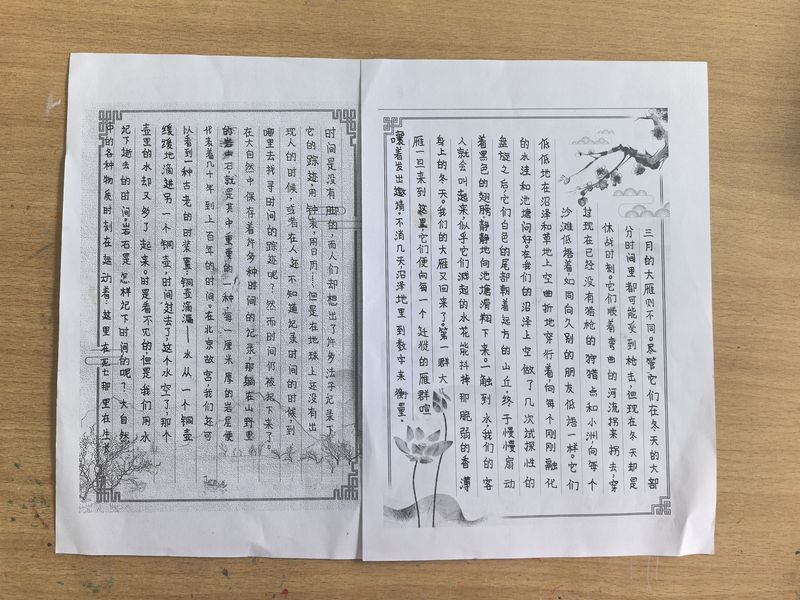 三月的大雁则不同。尽管它们在冬天的大部
分时间里都可能受到枪击，但现在冬天却是
休战时刻。它们顺着弯曲的河流拐来拐去，穿
过现在已经没有猎枪的狩猎点和小洲，向每个
沙滩低语着，如同向久别的朋友低语一样。它们
低低地在沼泽和草地上空曲折地穿行着，向每个刚刚融化
的水洼和池塘问好。在我们的沼泽上空做了几次试探性的
盘旋之后，它们白色的尾部朝着远方的山丘，终于慢慢扇动
着黑色的翅膀，静静地向池塘滑翔下来。一触到水，我们的客
人就会叫起来，似乎它们溅起的水花能抖掉那脆弱的香薄
身上的冬天。我们的大雁又回来了。第一群大
雁一旦来到这里，它们便向每一个迁徙的雁群喧
嚷着发出邀请。不消几天，沼泽地里到数字来衡量。
时间是没有脚的，而人们却想出了许多法子记录下
它的踪迹，用钟表，用日历……但是在地球上还没有出
现人的时候，或者在人还不知道记录时间的时候，到
哪里去找寻时间的踪迹呢？然而时间仍被记下来了。
在大自然中保存着许多种时间的记录，那躺在山野里
的岩石，就是其中重要的一种。每一厘米厚的岩层便
代表着几十年到上百年的时间。在北京故宫，我们还可
以看到一种古老的时装置：铜壶滴漏——水从一个铜壶
缓缓地滴进另一个铜壶，时间过去了，这个水空了，那个
壶里的水却又多了起来。时是看不见的但是我们用水
记下逝去的时间。岩石是怎样记下时间的呢？大自然
中的各种物质时刻在运动着：这里在死亡那里在生长